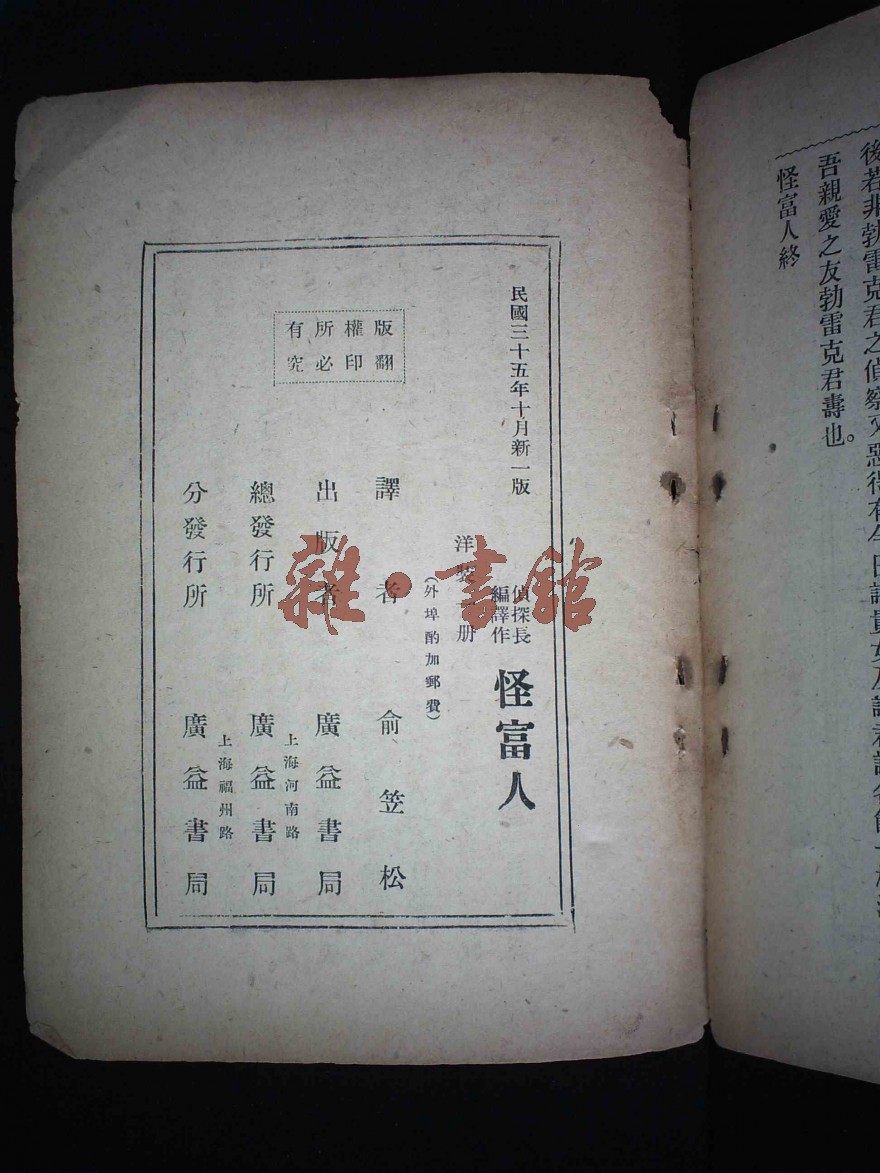 後若非勃雷克君之偵察
吾親愛之友勃雷克君壽也。
怪富人終
民國三十五年十月新一版
偵探長
編譯作
怪富人
洋裝 册
(外埠酌加郵費)
譯者 俞笠松
出版者 廣益書局
上海河南路
總發行所 廣益書局
上海福州路
分發行所 廣益書局
版權所有
翻印必究
雜·書館